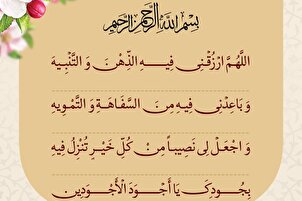 بِسْمِ اللَّهِ الرَّحْمَنِ الرَّحِيمِ
اللَّهُمَّ ارْزُقْنِي فِيهِ الذِّهْنَ وَ التَّنْبِيهَ
وَ بَاعِدْنِي فِيهِ مِنَ السَّفَاهَةِ وَ التَّمْوِيهِ
وَ اجْعَلْ لِي نَصِيباً مِنْ كُلِّ خَيْرٍ تُنْزِلُ فِيهِ
بِجُودِكَ يَا أَجْوَدَ الْأَجْوَدِينَ